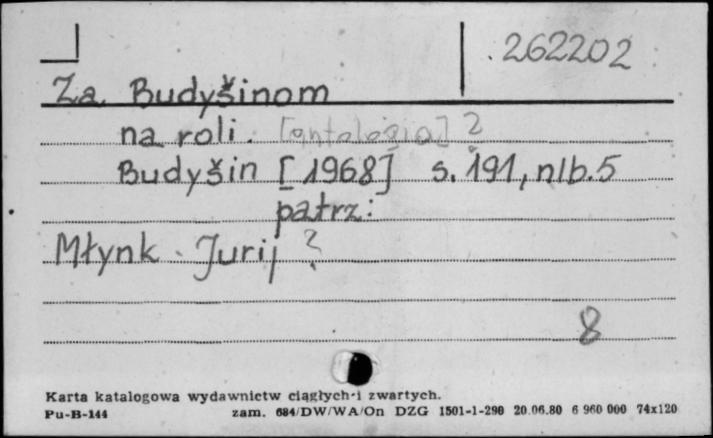 262202
Za Budyšinom
na roli. [antologia] ?
Budyšin [1968] s. 191, nlb. 5
patrz:
Młynk Jurij ?
8
Karta katalogowa wydawnictw ciągłych i zwartych.
Pu-B-144 zam. 684/DW/WA/On DZG 1501-1-290 20.06.80 6 960 000 74x120